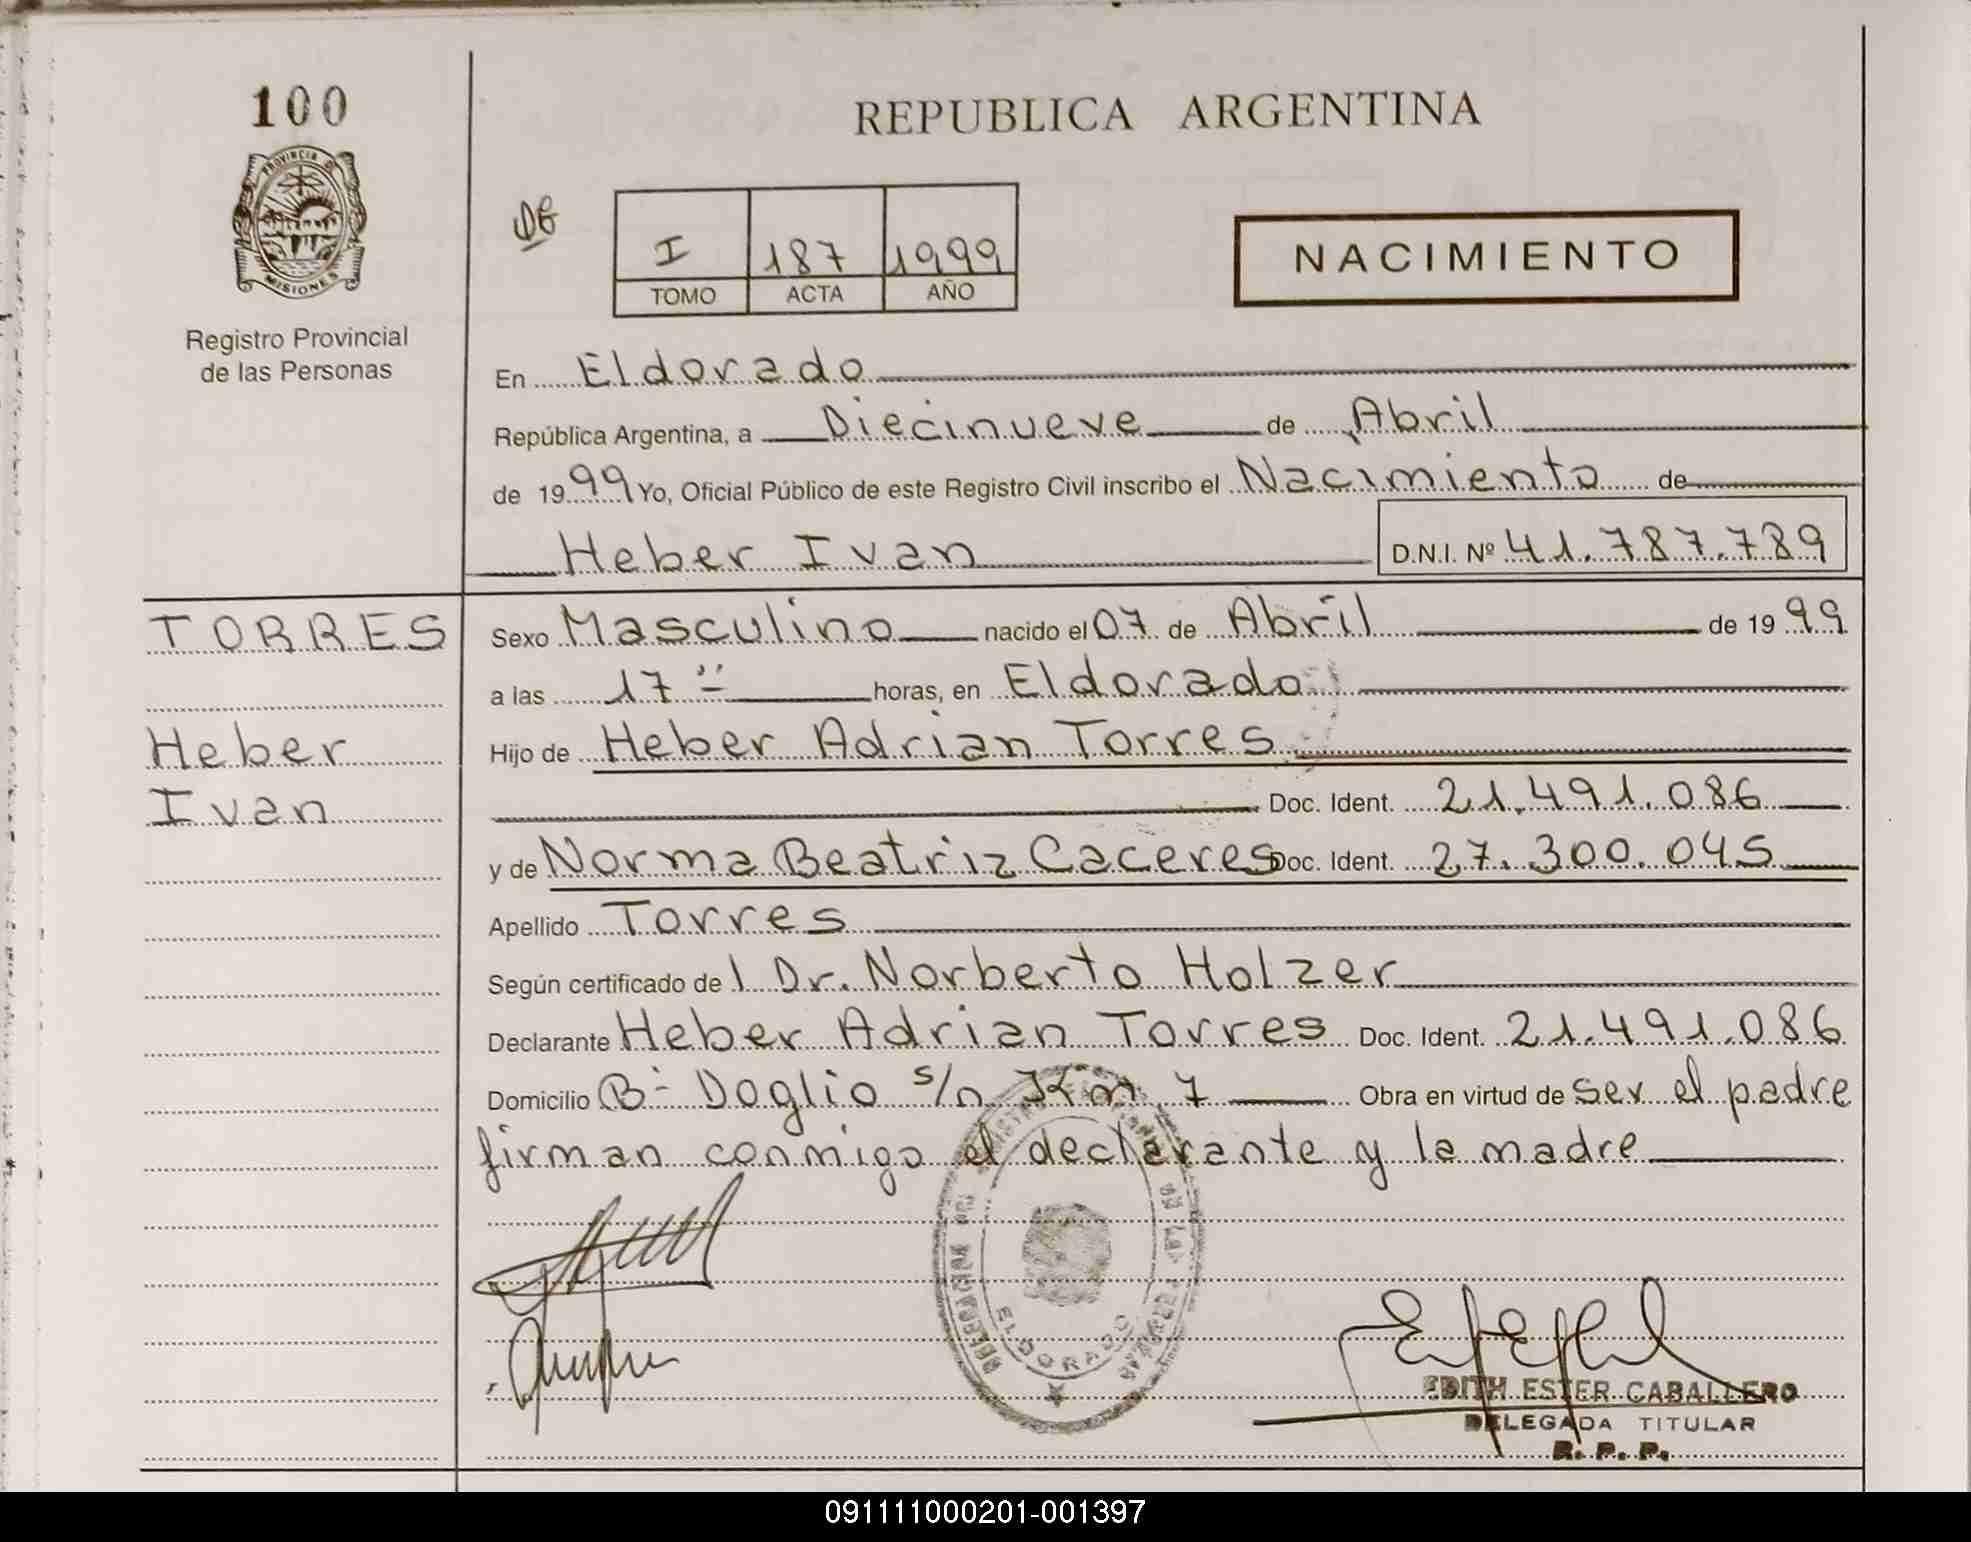 100
REPUBLICA ARGENTINA
PROVINCIA D
MISIONES
I 187 1999
TOMO ACTA AÑO
NACIMIENTO
Registro Provincial
de las Personas
En Eldorado
República Argentina, a Diecinueve de Abril
de 1999 Yo, Oficial Público de este Registro Civil inscribo el Nacimiento de
Heber Ivan D.N.I. Nº 41.787.789
TORRES Sexo Masculino nacido el 07 de Abril de 1999
a las 17 horas, en Eldorado
Heber Hijo de Heber Adrian Torres
Ivan Doc. Ident. 21.491.086
y de Norma Beatriz Caceres Doc. Ident. 27.300.045
Apellido Torres
Según certificado de l Dr. Norberto Holzer
Declarante Heber Adrian Torres Doc. Ident. 21.491.086
Domicilio Bº Doglio s/n Km 7 Obra en virtud de ser el padre
firman conmigo el declarante y la madre
ELDORADO
EDITH ESTER CABALLERO
DELEGADA TITULAR
R. P. P.
091111000201-001397